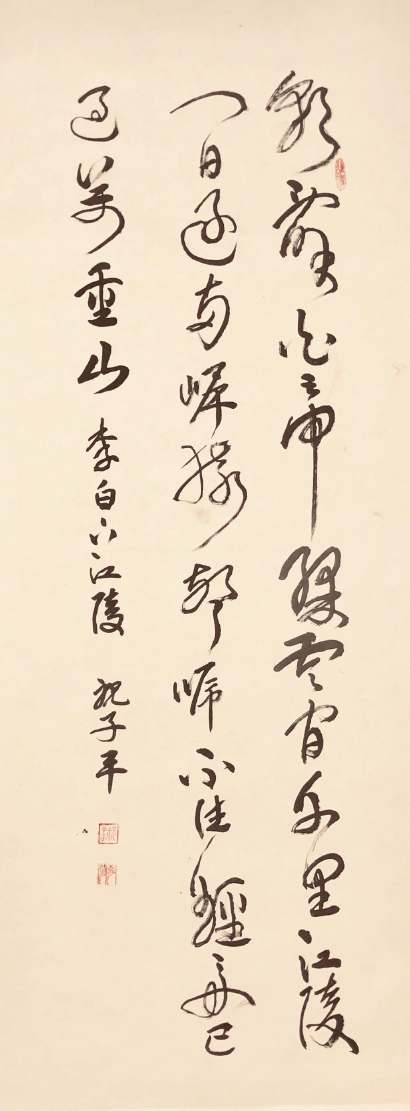 朝辭白帝綵雲間千里江陵
一日還兩岸猿聲啼不住輕舟已
過萬重山 李白下江陵 子平